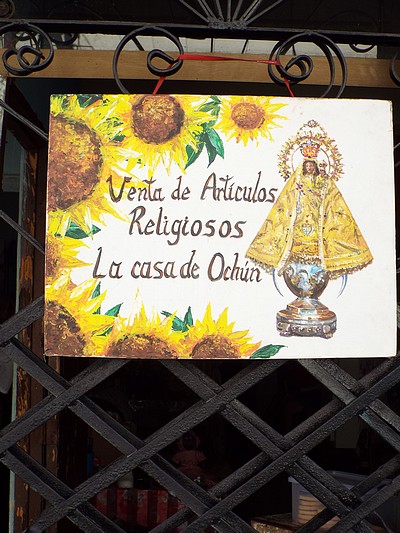 Venta de Artículos
Religiosos
La casa de Ochún